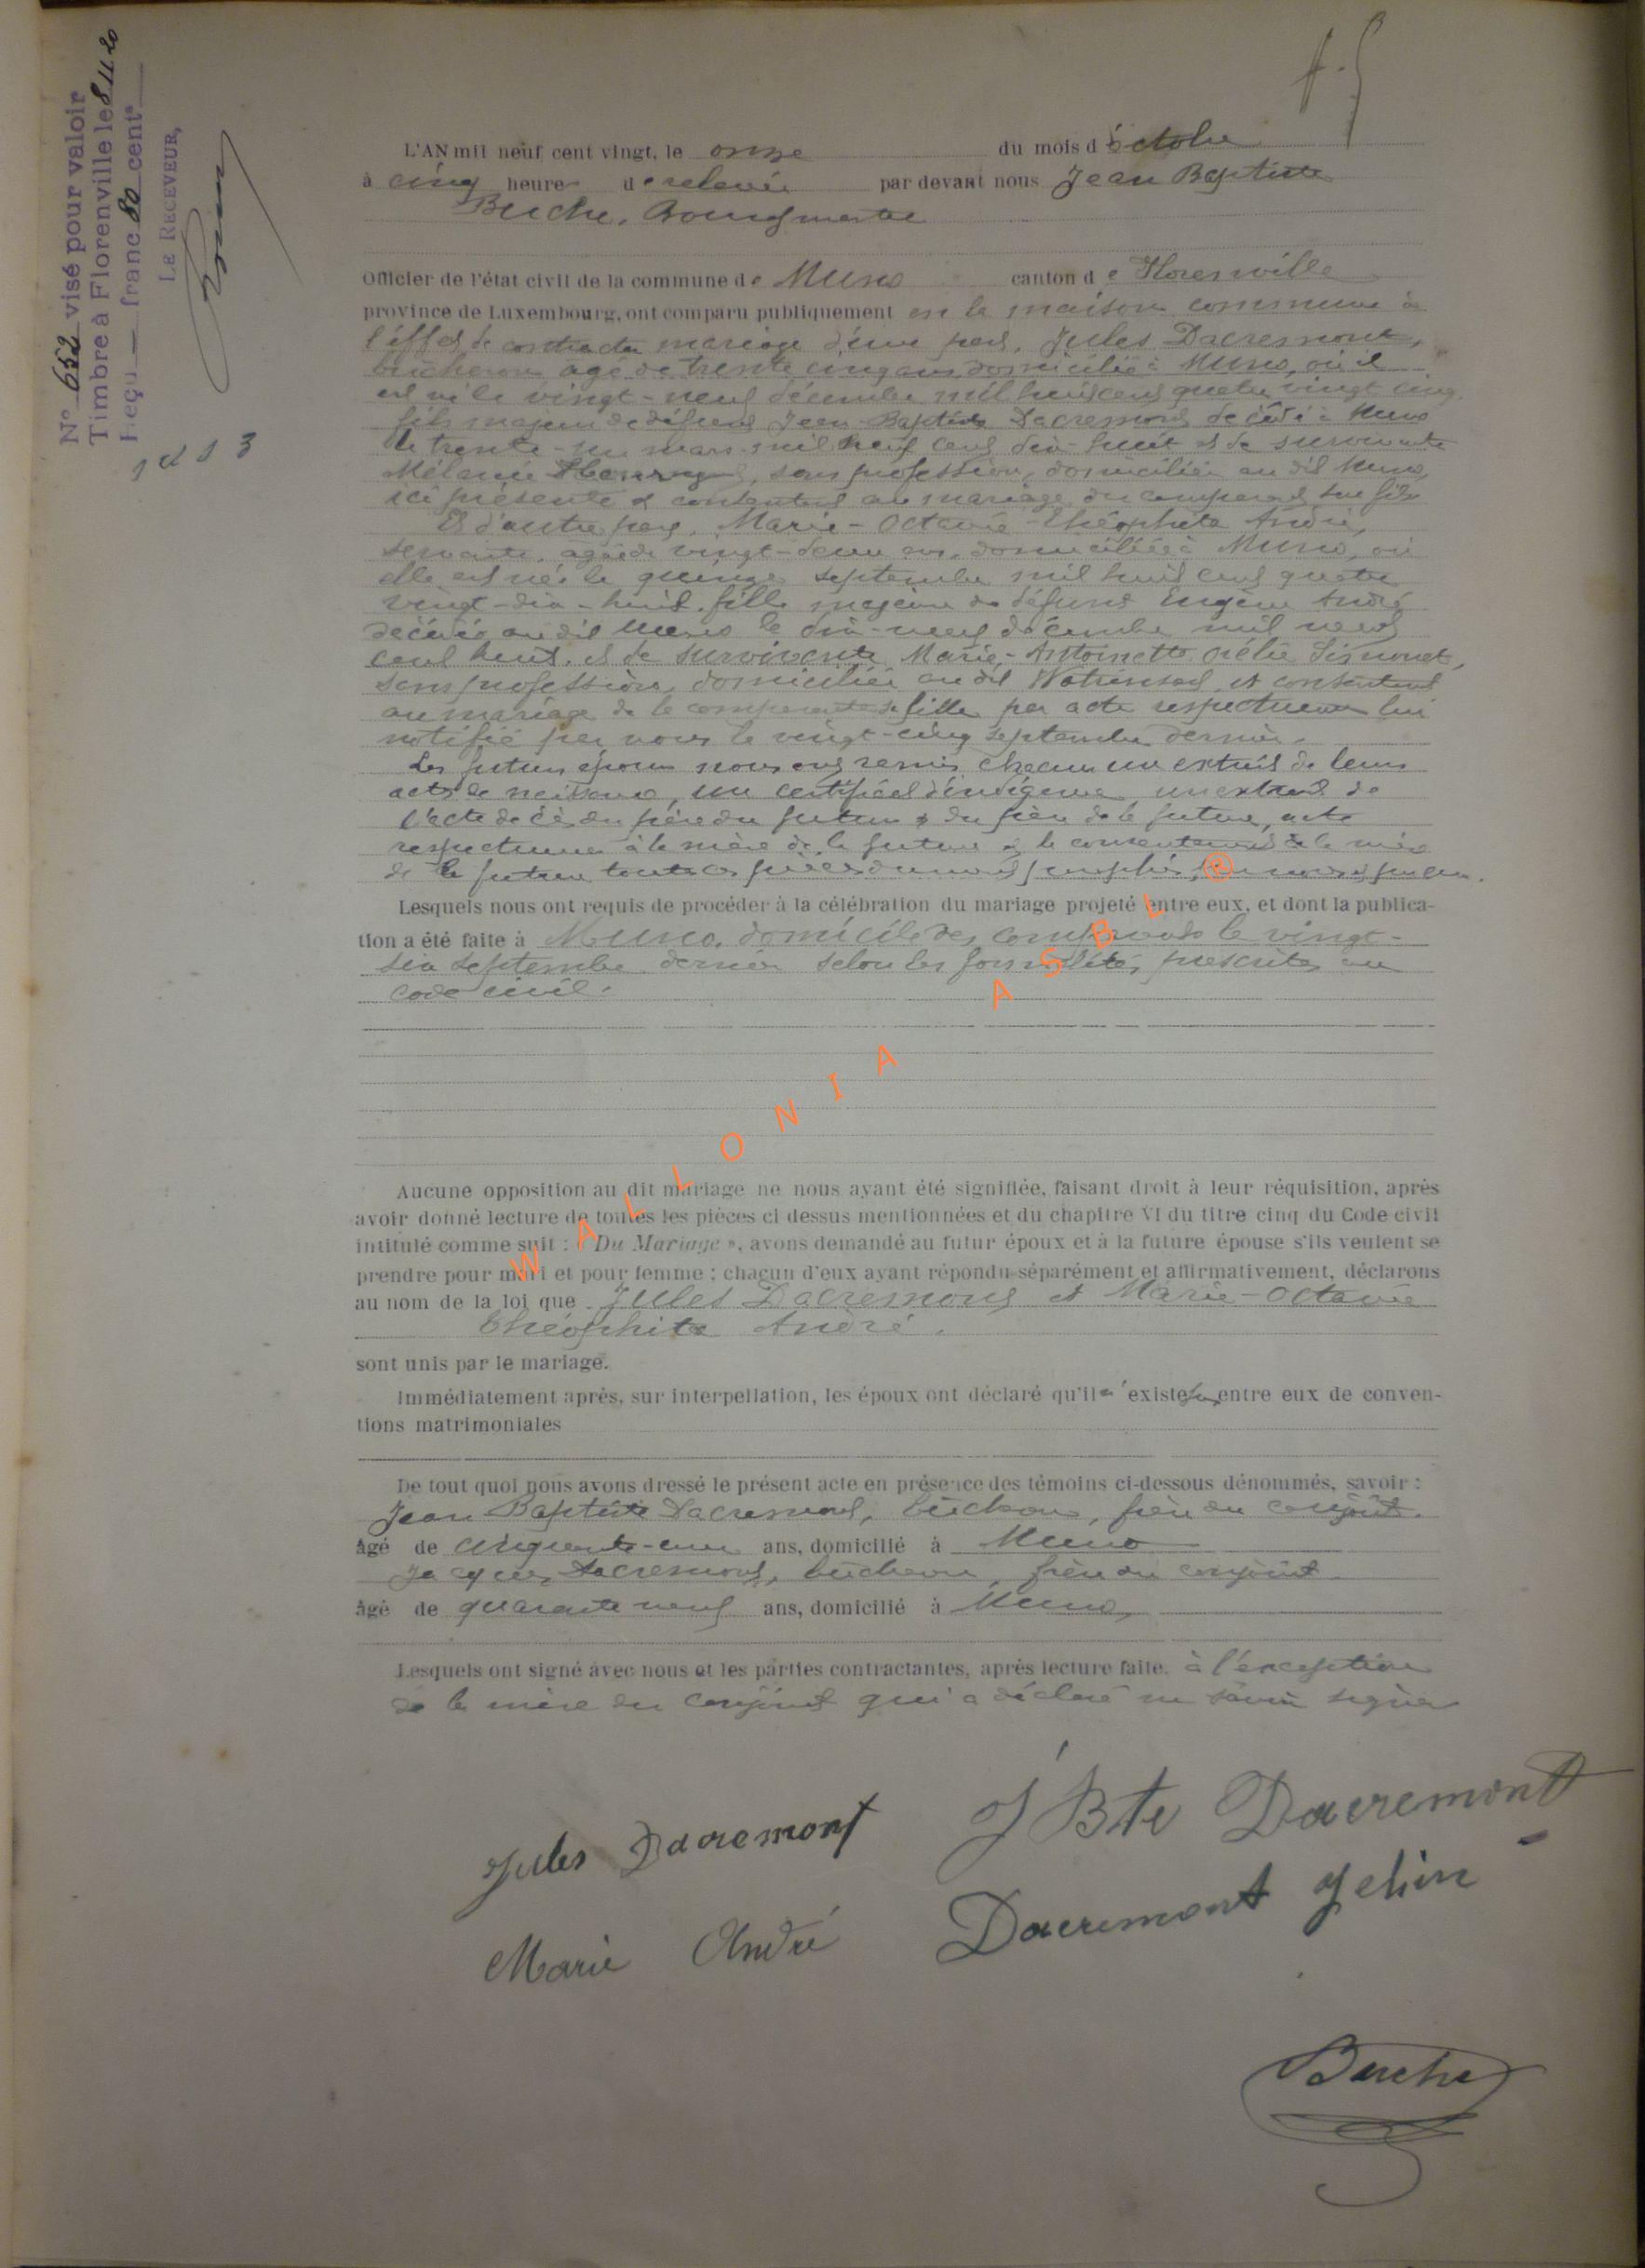 N° 652 visé pour valoir
Timbre à Florenville le 8 11 20
Reçu — franc 80 cent
LE RECEVEUR,
L'AN mil neuf cent vingt, le onze du mois d'octobre
à cinq heures de relevée par devant nous Jean Baptiste
Buche, Bourgmestre
Officier de l'état civil de la commune de Muno canton de Florenville
province de Luxembourg, ont comparu publiquement en la maison commune à
l'effet de contracter mariage d'une part, Jules Dacremont,
bûcheron âgé de trente cinq ans, domicilié à Muno, où il
est né le vingt-neuf décembre mil huit cent quatre vingt cinq,
fils majeur de défunt Jean Baptiste Dacremont décédé à Muno
le trente-un mars mil neuf cent dix-huit et de survivante
Mélanie sans profession, domiciliée au dit Muno,
ici présente et consentant au mariage du comparant son fils
Et d'autre part, Marie-Octavie-Théophile André,
servante, âgée de vingt-deux ans, domiciliée à Muno, où
elle est née le quinze septembre mil huit cent quatre
vingt-dix-huit, fille majeure de défunt Eugène André
décédé au dit Muno le dix-neuf décembre mil neuf
cent huit, et de survivante Marie-Antoinette
sans profession, domiciliée au dit et consentant
au mariage de la comparante sa fille par acte respectueux lui
notifié par nous le vingt-cinq septembre dernier.
Les futurs époux nous ont remis chacun un extrait de leurs
actes de naissance, un certificat d'indigence, un extrait de
l'acte de décès du père du futur & du père de la future, acte
respectueux à la mère de la future & le consentement de la mère
de la future toutes ces pièces
Lesquels nous ont requis de procéder à la célébration du mariage projeté entre eux, et dont la publica-
tion a été faite à Muno, domicile des comparants le vingt-
six septembre dernier selon les formalités prescrites au
code civil.
Aucune opposition au dit mariage ne nous ayant été signifiée, faisant droit à leur réquisition, après
avoir donné lecture de toutes les pièces ci dessus mentionnées et du chapitre VI du titre cinq du Code civil
intitulé comme suit : « Du Mariage », avons demandé au futur époux et à la future épouse s'ils veulent se
prendre pour mari et pour femme ; chacun d'eux ayant répondu séparément et affirmativement, déclarons
au nom de la loi que Jules Dacremont et Marie-Octavie
Théophile André.
sont unis par le mariage.
Immédiatement après, sur interpellation, les époux ont déclaré qu'il n'existe pas entre eux de conven-
tions matrimoniales
De tout quoi nous avons dressé le présent acte en présence des témoins ci-dessous dénommés, savoir :
Jean Baptiste Dacremont, bûcheron, frère du conjoint.
âgé de cinquante-un ans, domicilié à Muno
Jacques Dacremont, bûcheron, frère du conjoint
âgé de quarante neuf ans, domicilié à Muno,
Lesquels ont signé avec nous et les parties contractantes, après lecture faite, à l'exception
de la mère du conjoint qui a déclaré ne savoir signer
Jules Dacremont
J Bte Dacremont
Marie André
Dacremont Jelin
Buche
WALLONIA ASBL ®